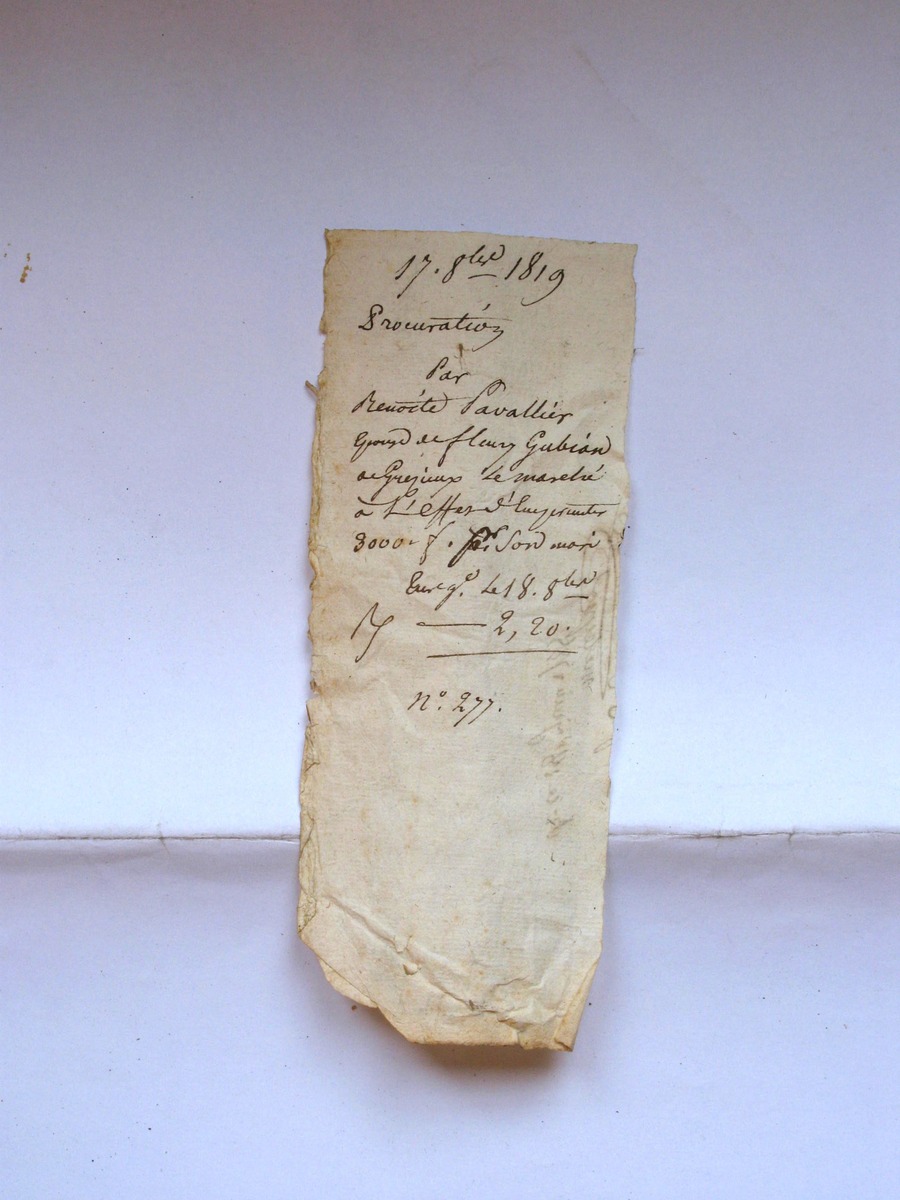 17. 8bre 1819
Procuration
Par
Benoite Pavallier
Epouse de fleury Gubian
de Grejieux le marché
a L'effet d'Emprunter
3000. f. par Son mari
Enregé. le 18. 8bre
2, 20.
N°. 277.